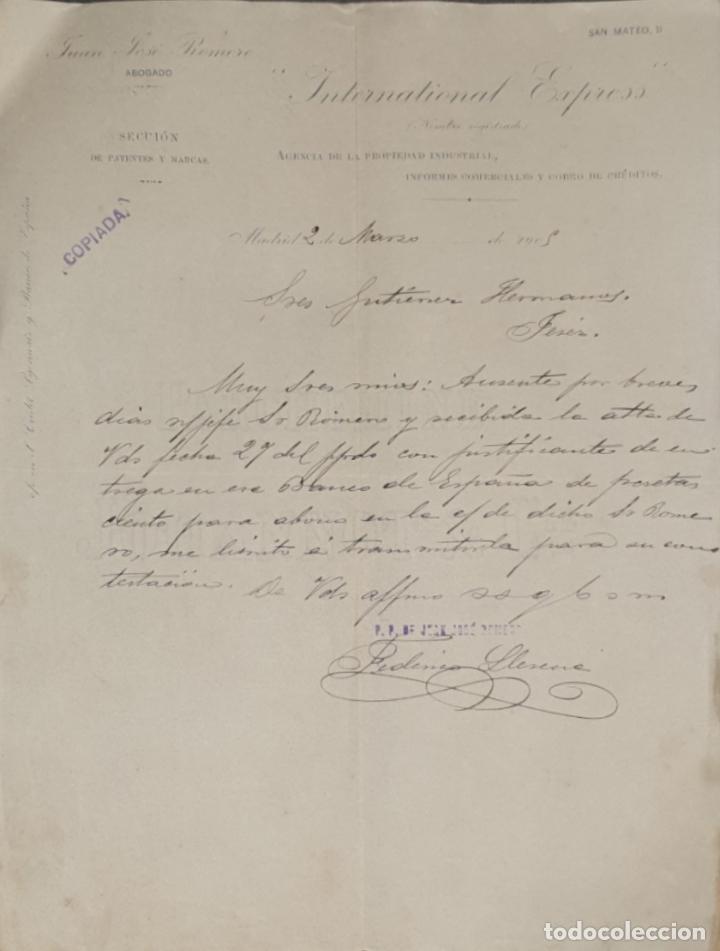 SAN MATEO, 11
Juan José Romero
ABOGADO
"International Express"
(Nombre registrado)
SECCIÓN
DE PATENTES Y MARCAS.
AGENCIA DE LA PROPIEDAD INDUSTRIAL,
INFORMES COMERCIALES Y COBRO DE CRÉDITOS.
COPIADA
Madrid 2 de Marzo de 1905
Sres Gutiérrez Hermanos.
Jerez.
Muy Sres mios: Ausente por breves
dias n/ jefe Sr Romero y recibida la atta de
Vds fecha 27 del ppdo con justificante de en
trega en ese Banco de España de pesetas
ciento para abono en la c/ de dicho Sr Rome
ro, me limito á transmitirla para su cons
testación. De Vds affmo s s q b s m
P. P. DE JUAN JOSÉ ROMERO
Federico Llerena
todocoleccion